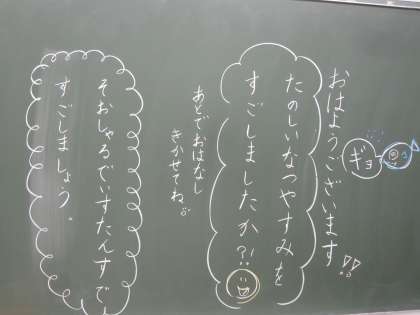 おはようございます!!
ギョ
たのしいなつやすみを
すごしましたか?!
あとでおはなし
きかせてね。
そおしゃるでぃすたんすで
すごしましょう。